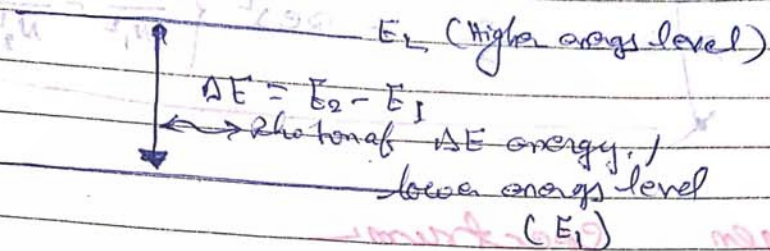 E2 (Higher energy level)
ΔE = E2 - E1
Photon of ΔE energy.
lower energy level
(E1)